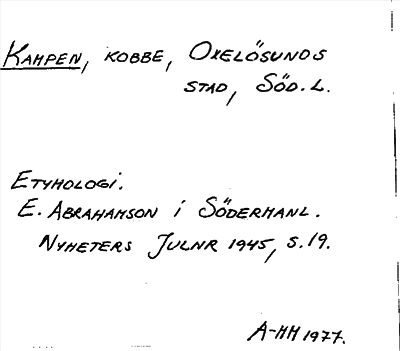 KAMPEN, KOBBE, OXELÖSUNDS
STAD, SÖD.L.
ETYMOLOGI.
E. ABRAHAMSON i SÖDERMANL.
NYHETERS JULNR 1945, S.19.
A-MM 1977.